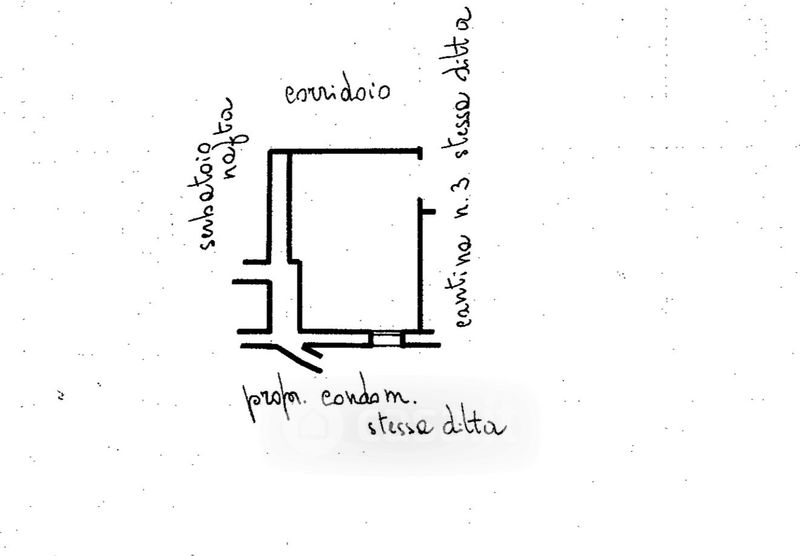 corridoio
serbatoio
nafta
cantina n. 3 stessa ditta
propr. condom.
stessa ditta